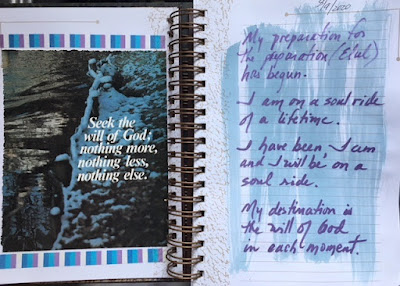 Seek the
will of God;
nothing more,
nothing less,
nothing else.
9/9/2020
My preparation for
the preparation (Elul)
has begun.
I am on a soul ride
of a lifetime.
I have been, I am
and I will be on a
soul ride.
My destination is
the will of God
in each moment.